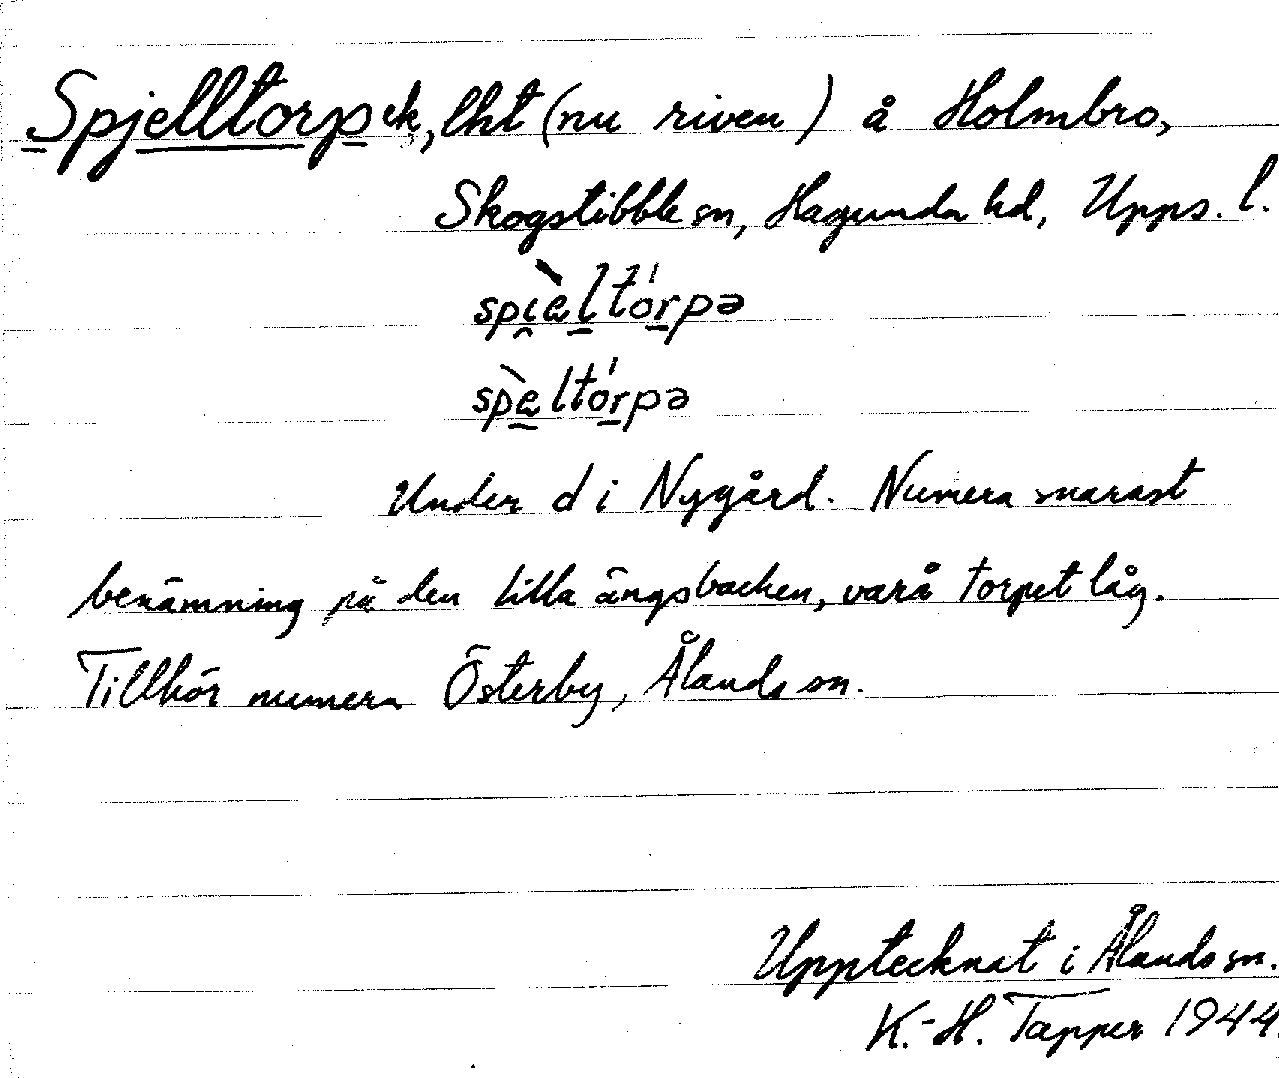 Spjelltorp ek, lht (nu riven) å Holmbro,
Skogstibble sn, Hagunda hd, Upps. l.
spi̯èltórpə
spèltórpə
Under d i Nygård. Numera snarast
benämning på den lilla ängsbacken, varå torpet låg.
Tillhör numera Österby, Ålands sn.
Upptecknat i Ålands sn.
K.-H. Tapper 1944.